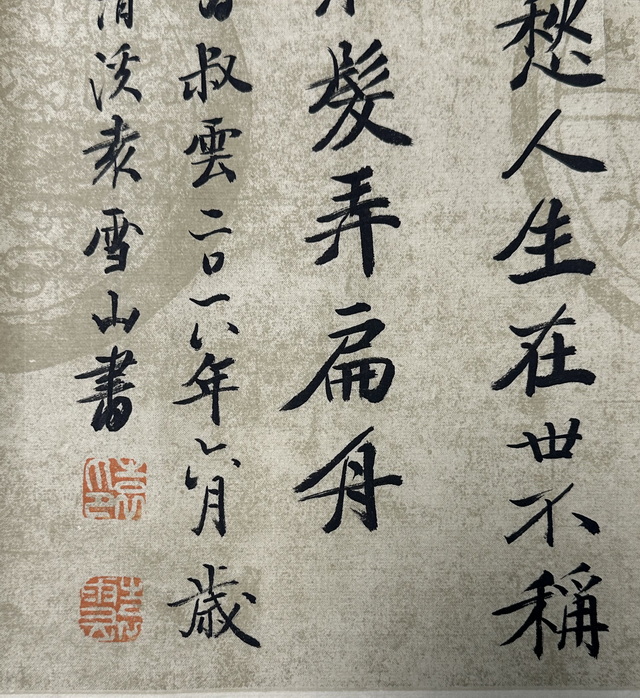 愁人生在世不稱
髮弄扁舟
叔雲二〇一八年六月歲
溪袁雪山書